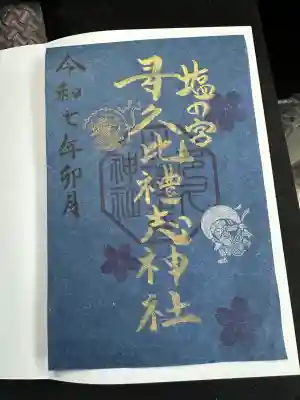 塩の宮
多久比禮志神社
令和七年卯月